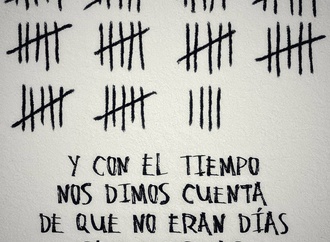 Y CON EL TIEMPO
NOS DIMOS CUENTA
DE QUE NO ERAN DÍAS